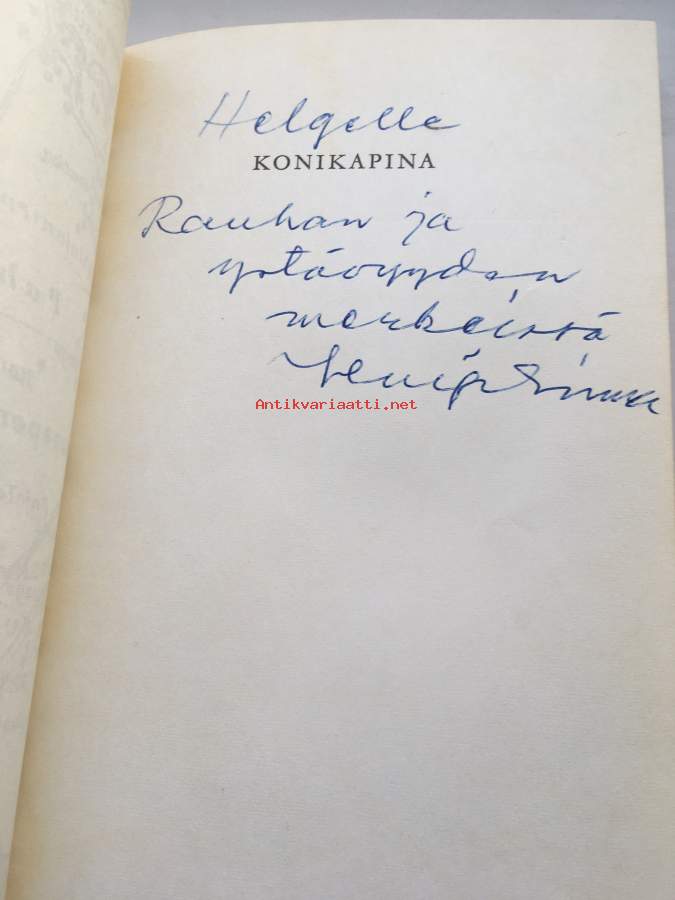 Helgelle
KONIKAPINA
Rauhan ja
ystävyyden
merkeissä
Antikvariaatti.net